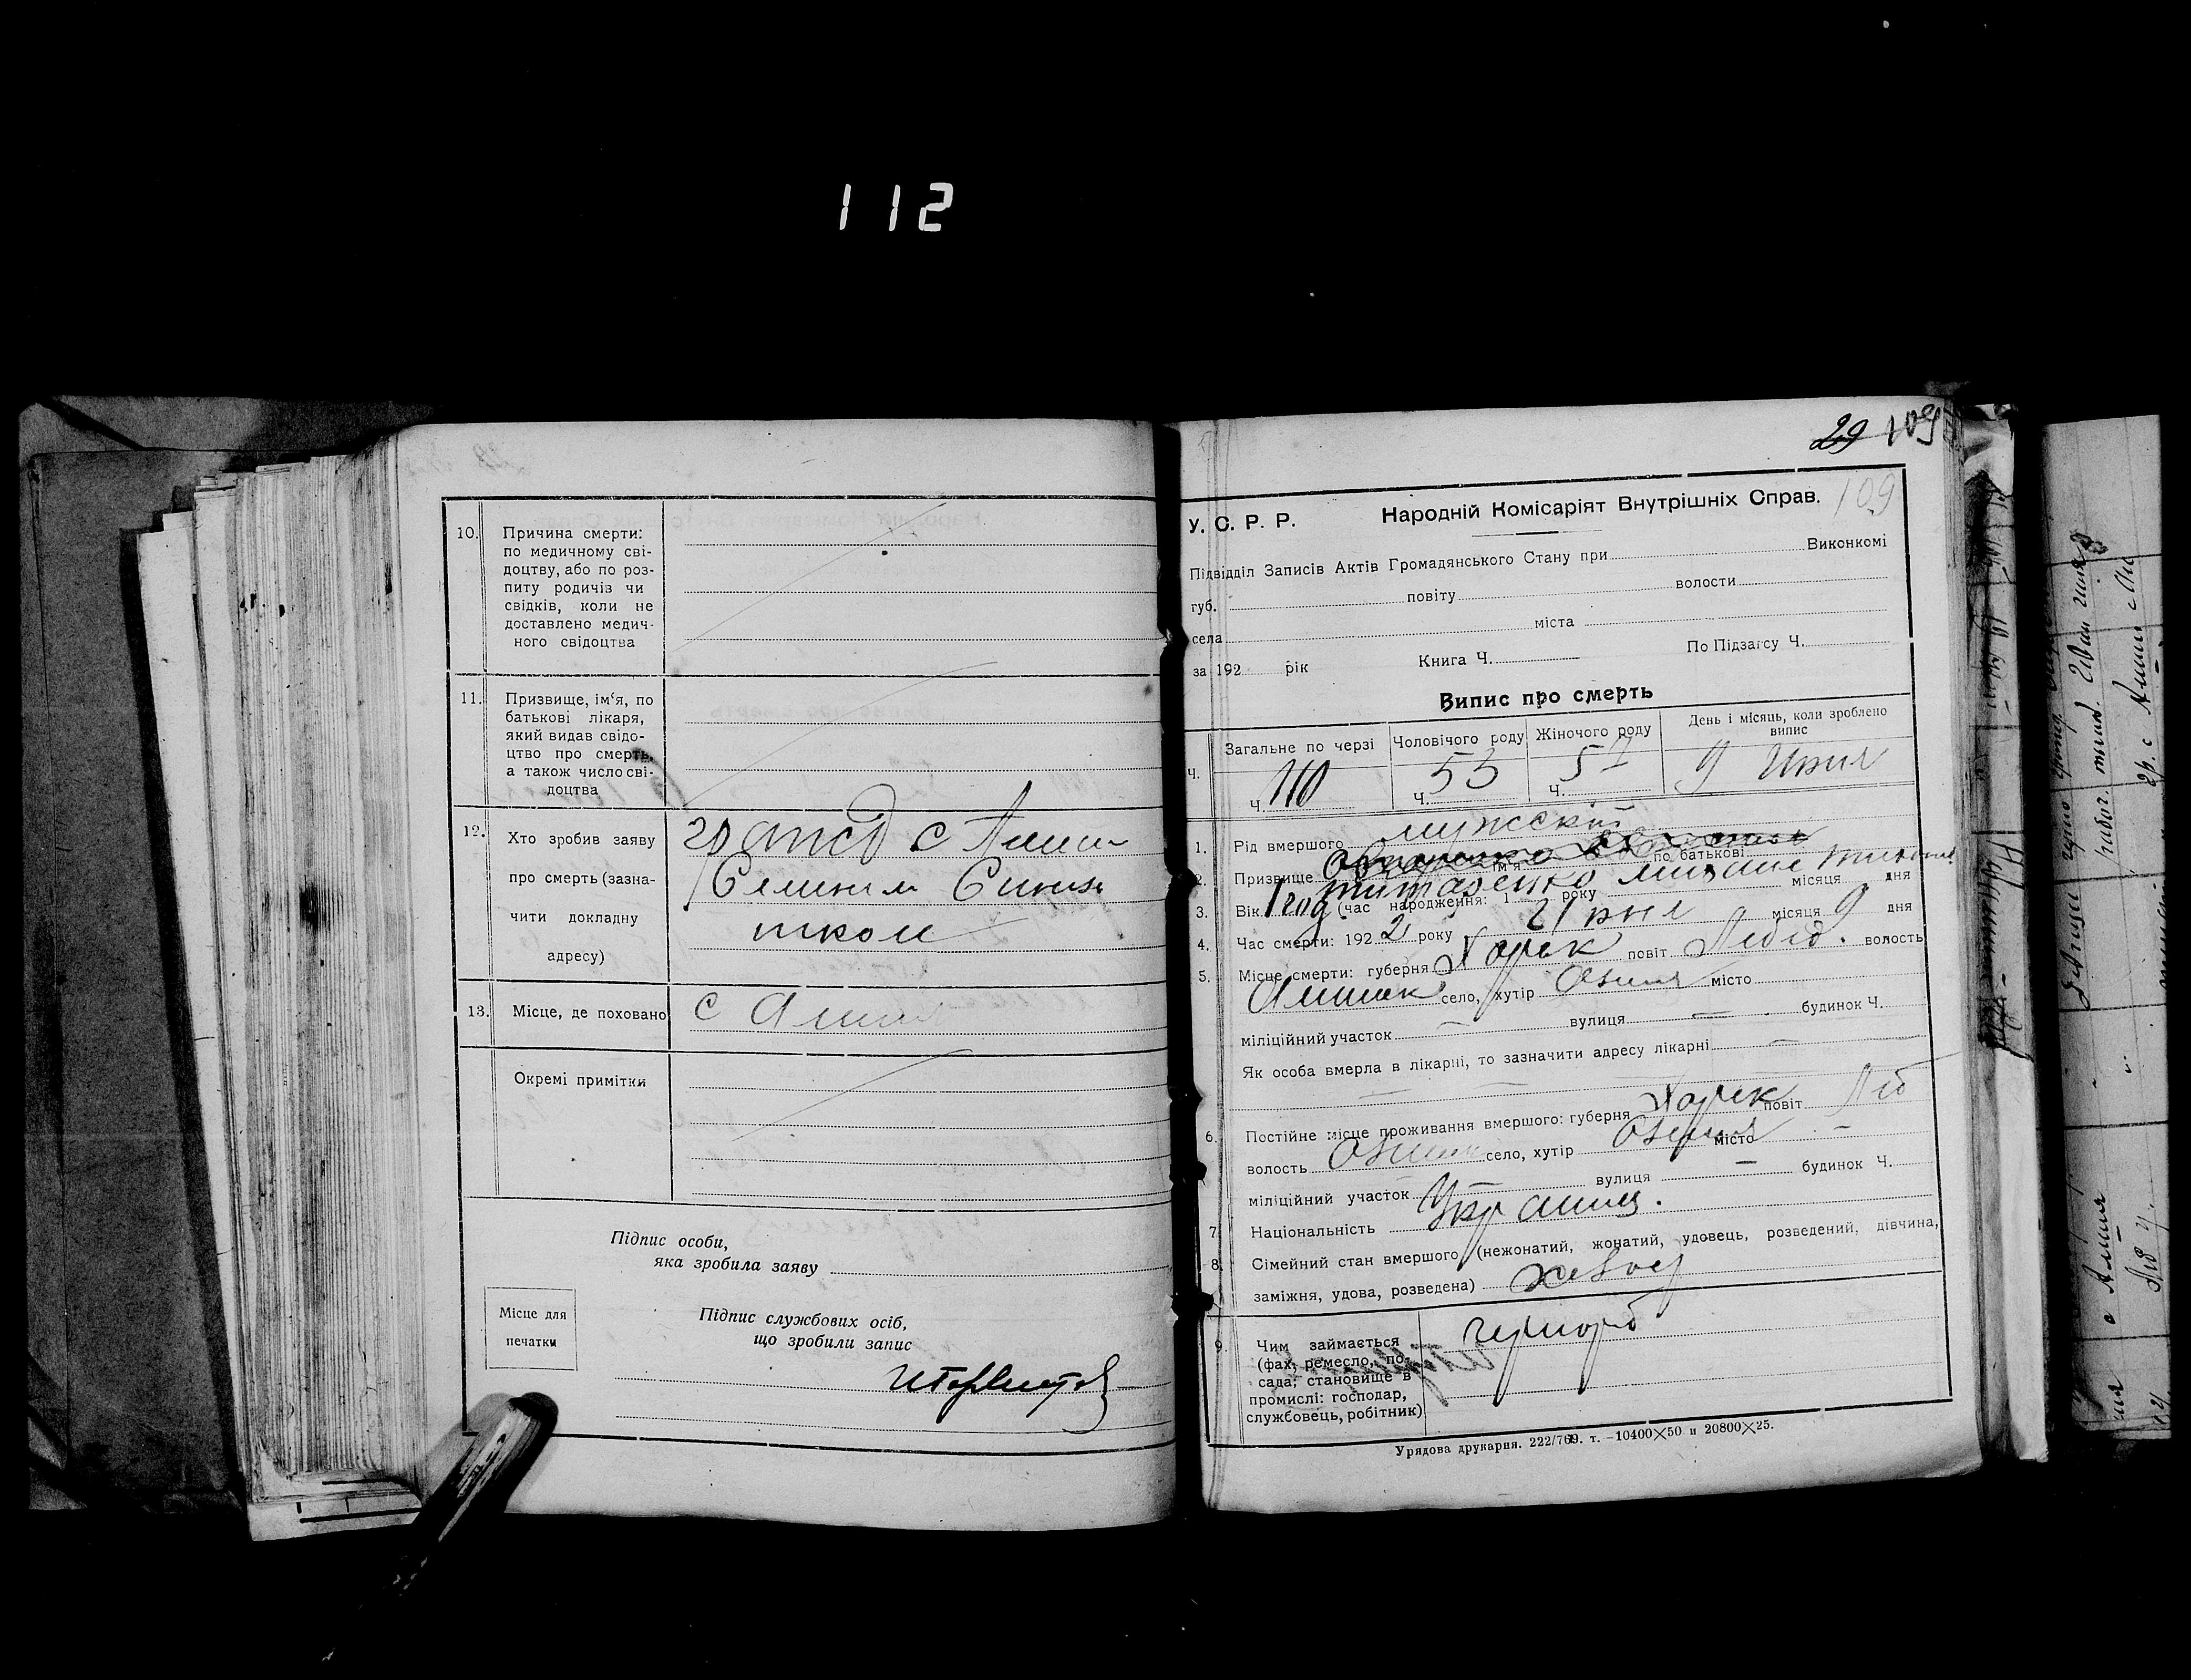 112
10.
Причина смерти:
по медичному сві-
доцтву, або по роз-
питу родичів чи
свідків, коли не
доставлено медич-
ного свідоцтва
11.
Призвище, ім'я, по
батькові лікаря,
який видав свідо-
цтво про смерть,
а також число сві-
доцтва
12.
Хто зробив заяву
про смерть (зазна-
чити докладну
адресу)
гражд с
13. Місце, де поховано с
Окремі примітки
Підпис особи,
яка зробила заяву
Місце для
печатки
Підпис службових осіб,
що зробили запис
29 109
109
У. С. Р. Р. Народній Комісаріят Внутрішніх Справ.
Підвідділ Записів Актів Громадянського Стану при Виконкомі
губ. повіту волости
села міста
за 192 рік Книга Ч. По Підзагсу Ч.
Випис про смерть
Ч. Загальне по черзі Чоловічого роду Жіночого роду День і місяць, коли зроблено
випис
Ч. 110 Ч. 53 Ч. 57 9 Июня
1. Рід вмершого мужский
2. Призвище ім'я по батькові
Титаренко
3. Вік 1 год (час народження: 1 року місяця дня
4. Час смерти: 1922 року Июня місяця 9 дня
5. Місце смерти: губерня Харьк повіт Лебед. волость
село, хутір місто
міліційний участок — вулиця — будинок Ч.
Як особа вмерла в лікарні, то зазначити адресу лікарні —
— — —
6. Постійне місце проживання вмершого: губерня Харьк повіт Леб
волость село, хутір місто —
міліційний участок — вулиця — будинок Ч.
7. Національність Украинец.
8. Сімейний стан вмершого (нежонатий, жонатий, удовець, розведений, дівчина,
заміжня, удова, розведена) холост
9. Чим займається
(фах, ремесло, по-
сада; становище в
промислі: господар,
службовець, робітник)
Урядова друкарня. 222/769. т. —10400×50 и 20800×25.